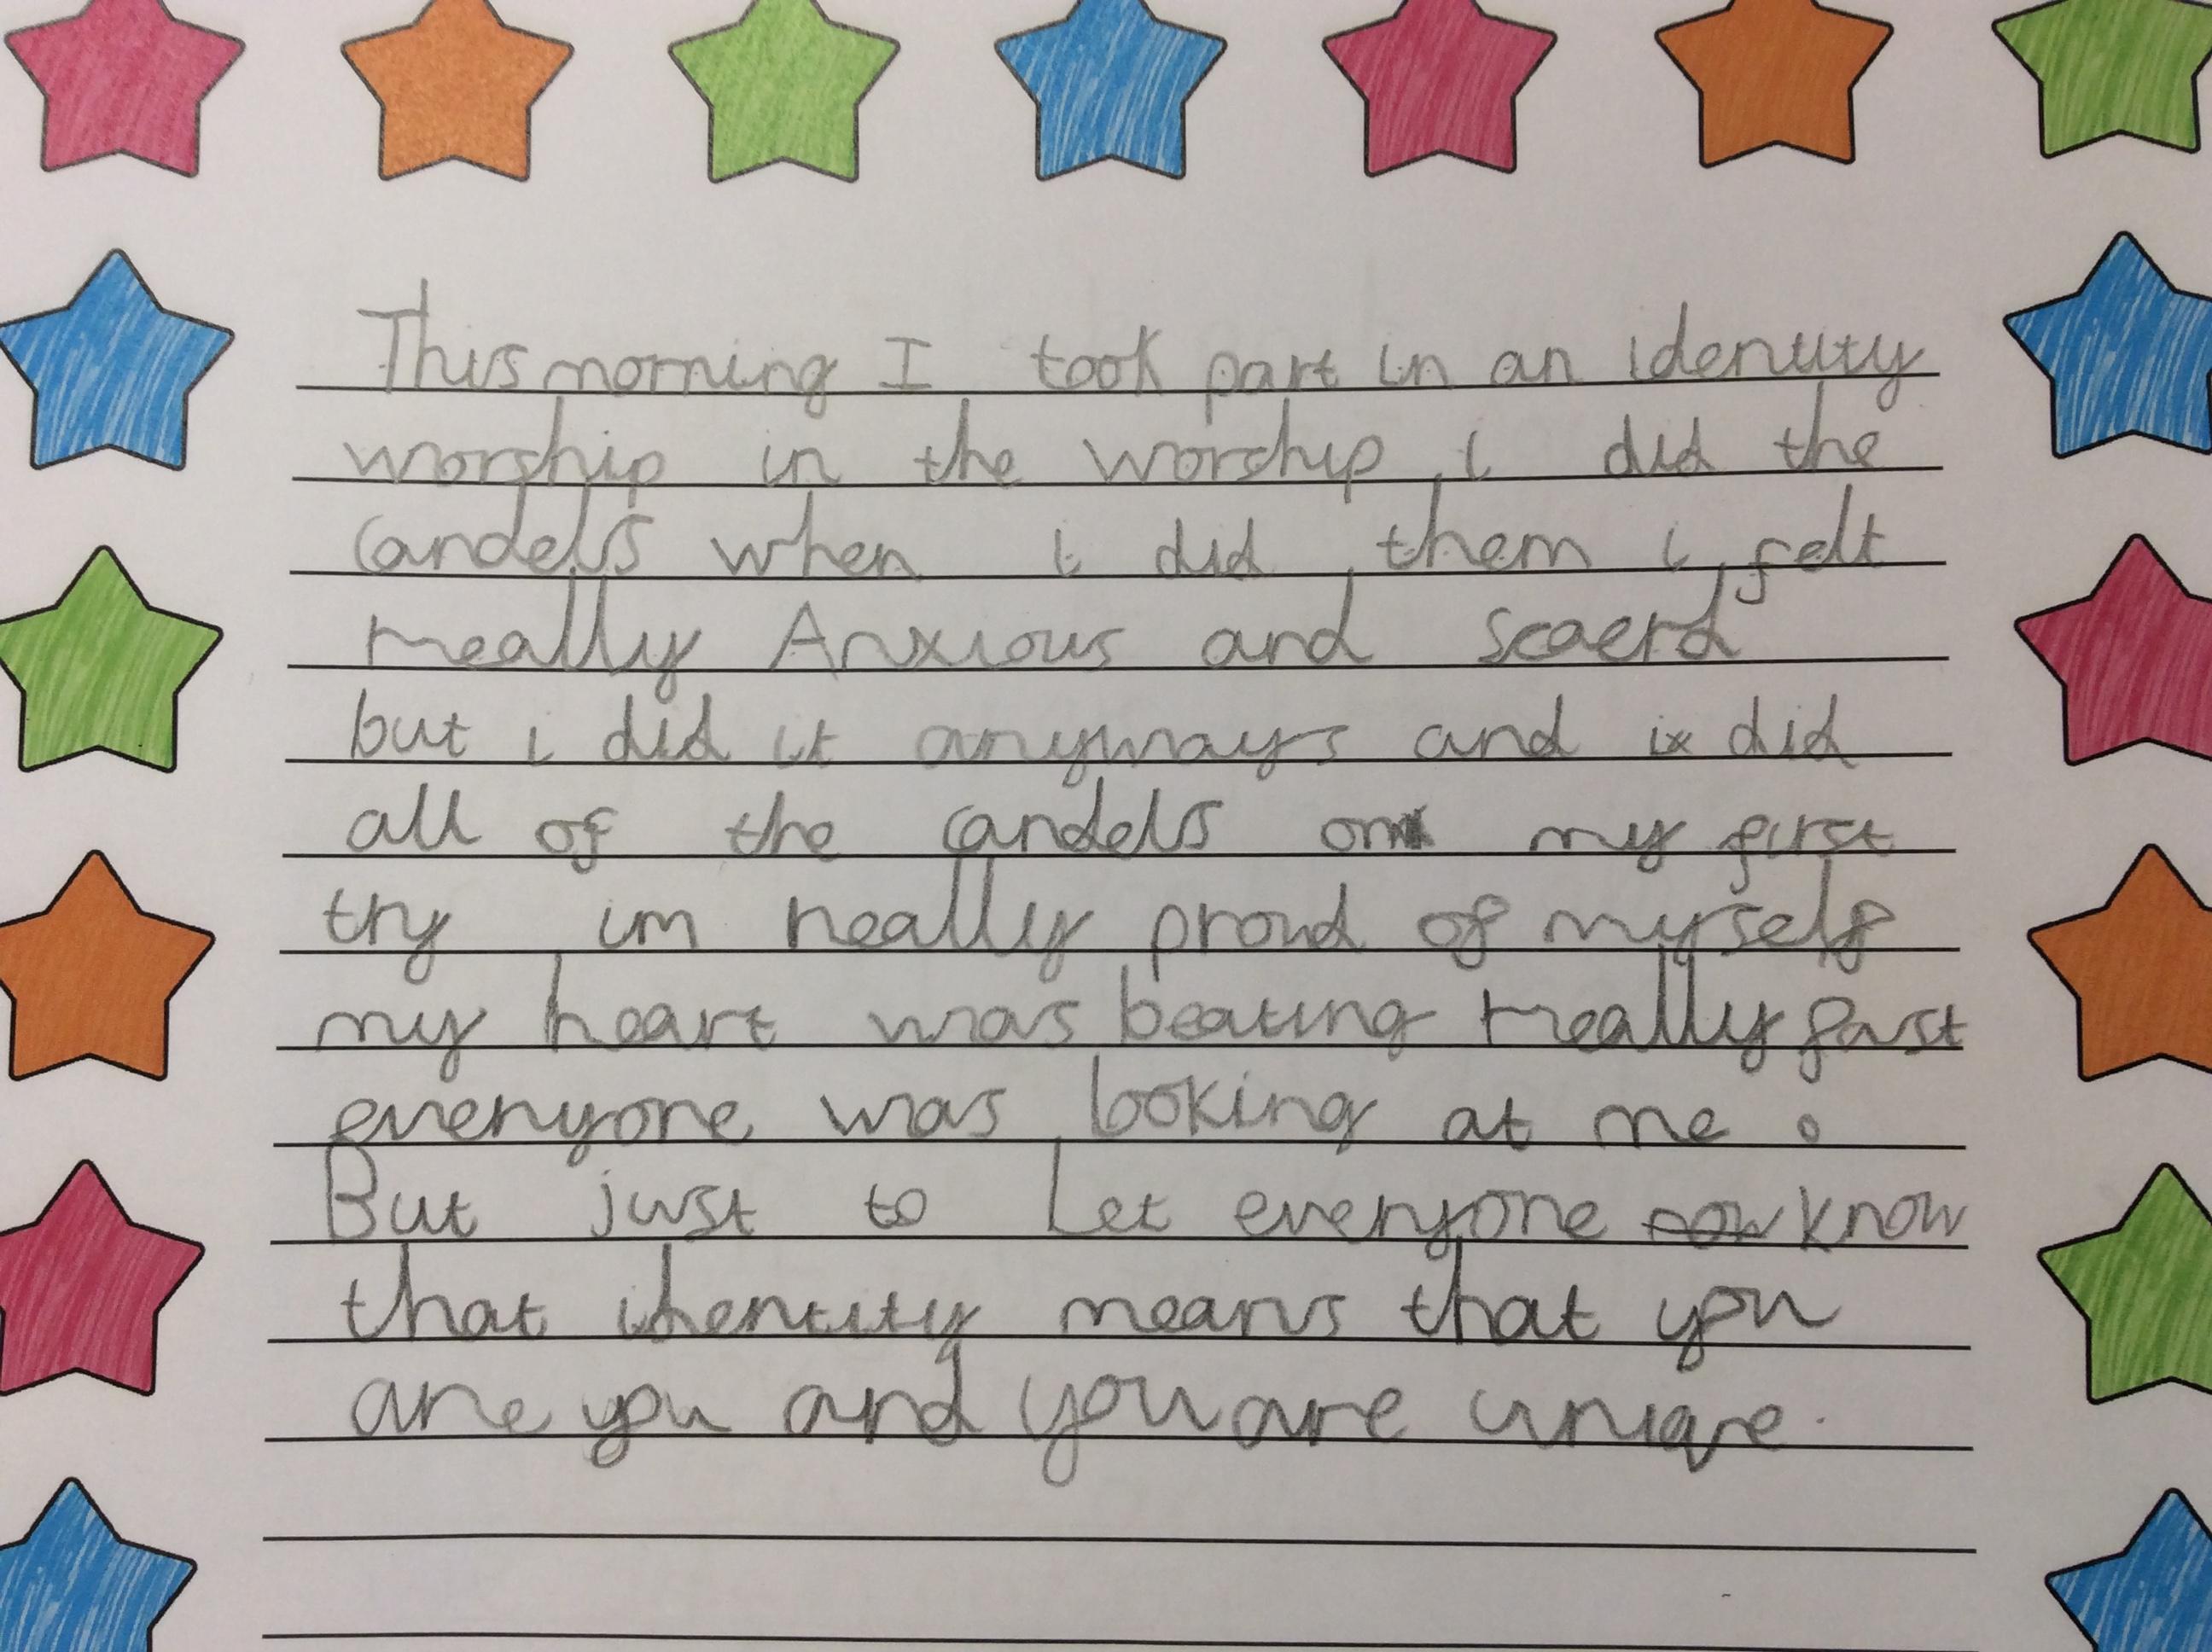 This morning I took part in an identity
worship in the worship i did the
candels when i did them i felt
really Anxious and scaerd
but i did it anyways and i did
all of the candels on my first
try im really proud of myself
my heart was beating really fast
everyone was looking at me.
But just to Let everyone know
that identity means that you
are you and you are uniqe.